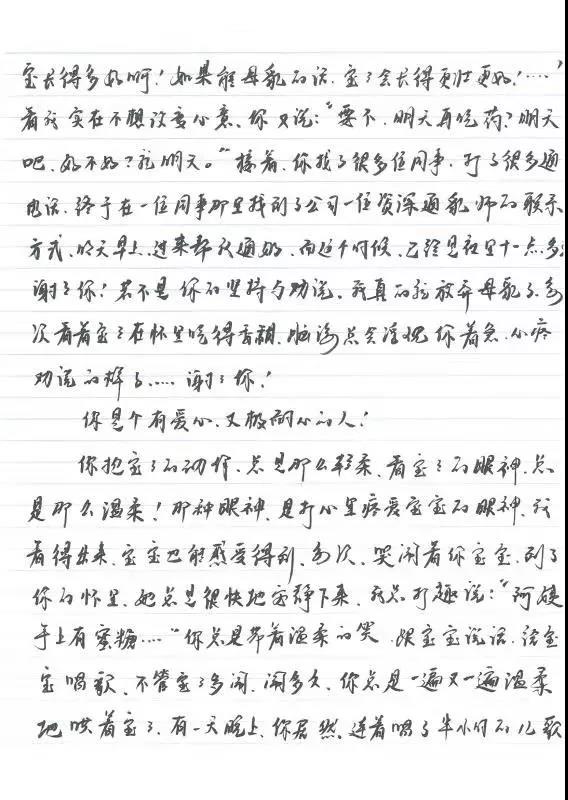 宝长得多好啊！如果能母乳的话，宝宝会长得更壮更好！……"
看我实在不想改变心意、你又说："要不，明天再吃药？明天
吧，好不好？就明天。"接着，你找了很多位同事，打了很多通
电话，终于在一位同事那里找到了公司一位资深通乳师的联系
方式、明天早上过来帮我通奶、而这个时候、已经是夜里十一点多
谢谢你！若不是你的坚持与劝说，我真的就放弃母乳了。每
次看着宝宝在怀里吃得香甜、脑海总会浮现你着急、心疼
劝说的样子……谢谢你！
你是个有爱心、又极耐心的人！
你抱宝宝的动作，总是那么轻柔、看宝宝的眼神，总
是那么温柔！那种眼神，是打心里疼爱宝宝的眼神，我
看得出来，宝宝也能感受得到、每次，哭闹着的宝宝，到了
你的怀里、她总是很快地安静下来，我总打趣说："阿姨
手上有蜜糖……"你总是带着温柔的笑，跟宝宝说话，给宝
宝唱歌、不管宝宝多闹，闹多久，你总是一遍又一遍温柔
地哄着宝宝，有一天晚上，你居然，连着唱了半小时的儿歌